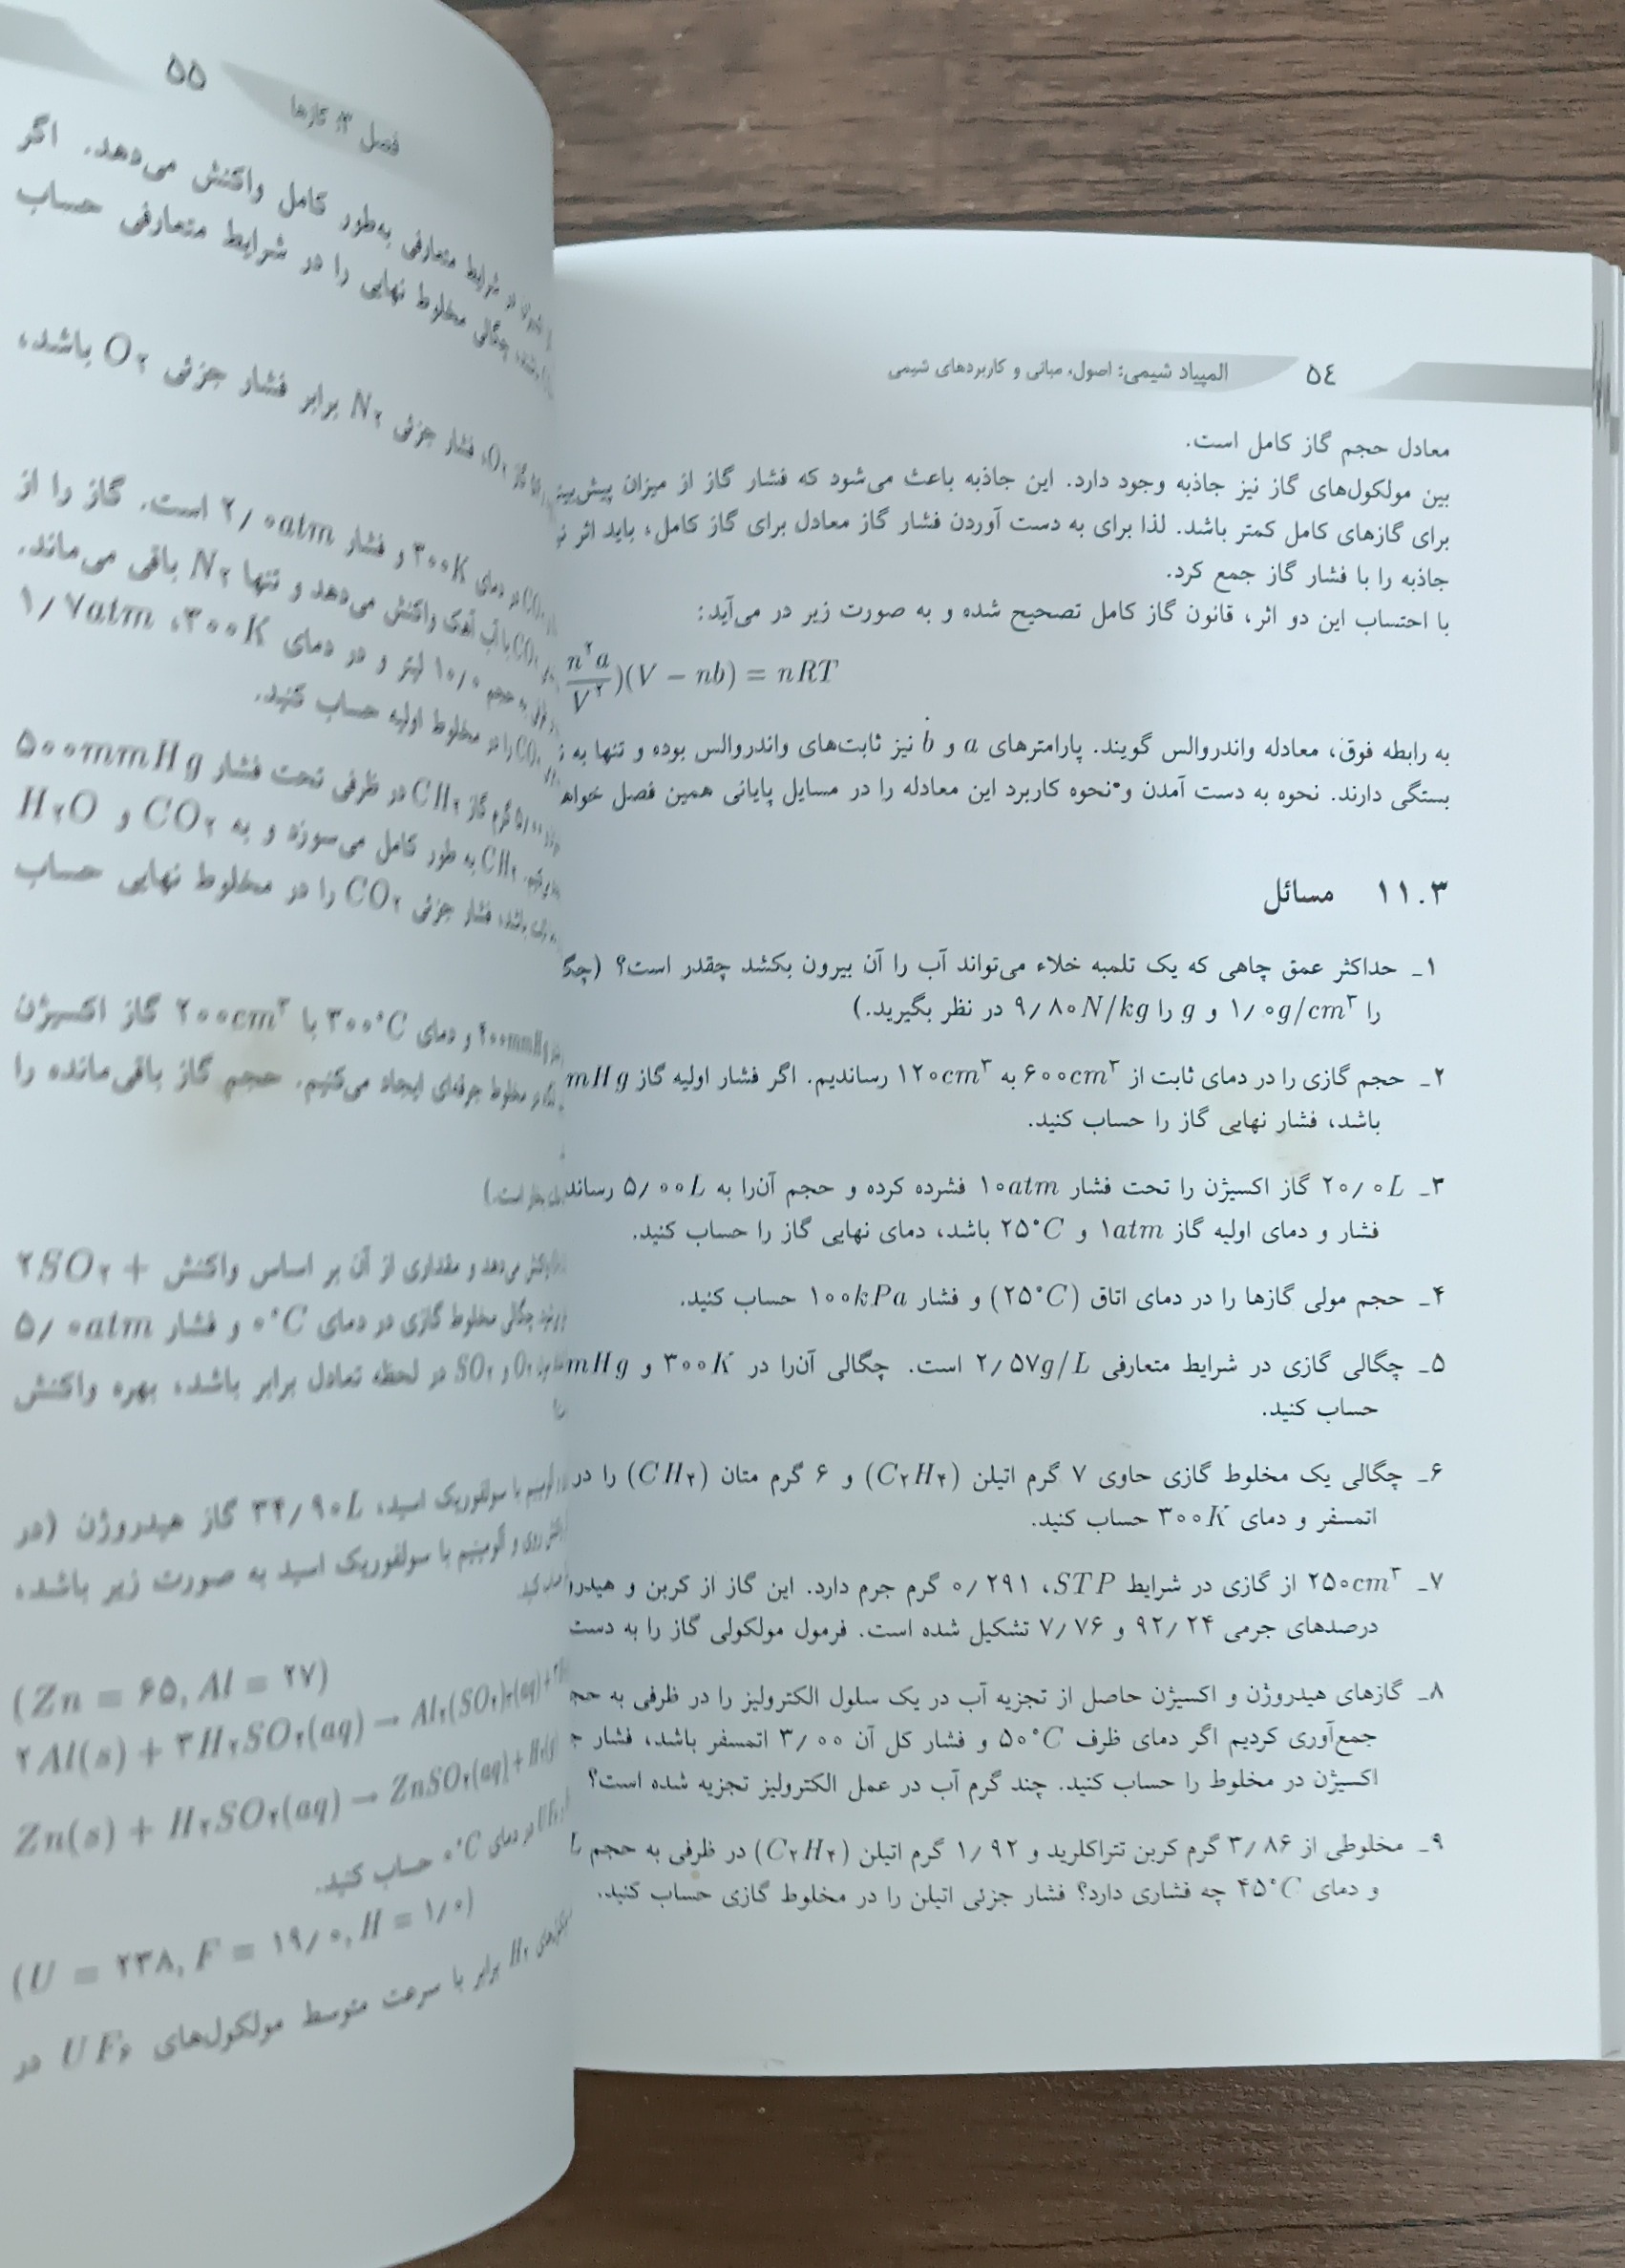 المپیاد شیمی: اصول، مبانی و کاربردهای شیمی ۵۴
معادل حجم گاز کامل است.
بین مولکول‌های گاز نیز جاذبه وجود دارد. این جاذبه باعث می‌شود که فشار گاز از میزان
برای گازهای کامل کمتر باشد. لذا برای به دست آوردن فشار گاز معادل برای گاز کامل، باید اثر
جاذبه را با فشار گاز جمع کرد.
با احتساب این دو اثر، قانون گاز کامل تصحیح شده و به صورت زیر در می‌آید:
n^۲a/V^۲)(V − nb) = nRT
به رابطه فوق، معادله واندروالس گویند. پارامترهای a و b نیز ثابت‌های واندروالس بوده و تنها به
بستگی دارند. نحوه به دست آمدن و نحوه کاربرد این معادله را در مسایل پایانی همین فصل
۱۱.۳ مسائل
۱ـ حداکثر عمق چاهی که یک تلمبه خلاء می‌تواند آب را آن بیرون بکشد چقدر است؟
را ۱/۰g/cm^۳ و g را ۹/۸۰N/kg در نظر بگیرید.)
۲ـ حجم گازی را در دمای ثابت از ۶۰۰cm^۳ به ۱۲۰cm^۳ رساندیم. اگر فشار اولیه گاز mHg
باشد، فشار نهایی گاز را حساب کنید.
۳ـ ۲۰/۰L گاز اکسیژن را تحت فشار ۱۰atm فشرده کرده و حجم آن‌را به ۵/۰۰L
فشار و دمای اولیه گاز ۱atm و ۲۵°C باشد، دمای نهایی گاز را حساب کنید.
۴ـ حجم مولی گازها را در دمای اتاق (۲۵°C) و فشار ۱۰۰kPa حساب کنید.
۵ـ چگالی گازی در شرایط متعارفی ۲/۵۷g/L است. چگالی آن‌را در ۳۰۰K و mHg
حساب کنید.
۶ـ چگالی یک مخلوط گازی حاوی ۷ گرم اتیلن (C۲H۴) و ۶ گرم متان (CH۴) را در
اتمسفر و دمای ۳۰۰K حساب کنید.
۷ـ ۲۵۰cm^۳ از گازی در شرایط STP، ۰/۲۹۱ گرم جرم دارد. این گاز از کربن و
درصدهای جرمی ۹۲/۲۴ و ۷/۷۶ تشکیل شده است. فرمول مولکولی گاز را به دست
۸ـ گازهای هیدروژن و اکسیژن حاصل از تجزیه آب در یک سلول الکترولیز را در ظرفی به
جمع‌آوری کردیم اگر دمای ظرف ۵۰°C و فشار کل آن ۳/۰۰ اتمسفر باشد، فشار
اکسیژن در مخلوط را حساب کنید. چند گرم آب در عمل الکترولیز تجزیه شده است؟
۹ـ مخلوطی از ۳/۸۶ گرم کربن تتراکلرید و ۱/۹۲ گرم اتیلن (C۲H۴) در ظرفی به حجم
و دمای ۴۵°C چه فشاری دارد؟ فشار جزئی اتیلن را در مخلوط گازی حساب کنید.
فصل ۳: گازها ۵۵
در شرایط متعارفی به‌طور کامل واکنش می‌دهد. اگر
چگالی مخلوط نهایی را در شرایط متعارفی حساب
فشار جزئی N۲ برابر فشار جزئی O۲ باشد،
در دمای ۳۰۰K و فشار ۲/۰atm است. گاز را از
با آب آهک واکنش می‌دهد و تنها N۲ باقی می‌ماند.
به حجم ۱۰/۰ لیتر و در دمای ۳۰۰K، ۱/۷atm
را در مخلوط اولیه حساب کنید.
گرم گاز CH۴ در ظرفی تحت فشار ۵۰۰mmHg
CH۴ به طور کامل می‌سوزد و به CO۲ و H۲O
باشد، فشار جزئی CO۲ را در مخلوط نهایی حساب
و دمای ۳۰۰°C با ۲۰۰cm^۳ گاز اکسیژن
مخلوط جرقه‌ای ایجاد می‌کنیم. حجم گاز باقی‌مانده را
است.)
می‌دهد و مقداری از آن بر اساس واکنش ۲SO۲ +
چگالی مخلوط گازی در دمای ۰°C و فشار ۵/۰atm
در لحظه تعادل برابر باشد، بهره واکنش
با سولفوریک اسید، ۳۴/۹۰L گاز هیدروژن (در
روی و آلومینیم با سولفوریک اسید به صورت زیر باشد،
(Zn = ۶۵, Al = ۲۷)
۲Al(s) + ۳H۲SO۴(aq) → Al۲(SO۴)۳(aq) +
Zn(s) + H۲SO۴(aq) → ZnSO۴(aq) + H۲(g)
در دمای ۰°C حساب کنید.
(U = ۲۳۸, F = ۱۹/۰, H = ۱/۰)
H۲ برابر با سرعت متوسط مولکول‌های UF۶ در